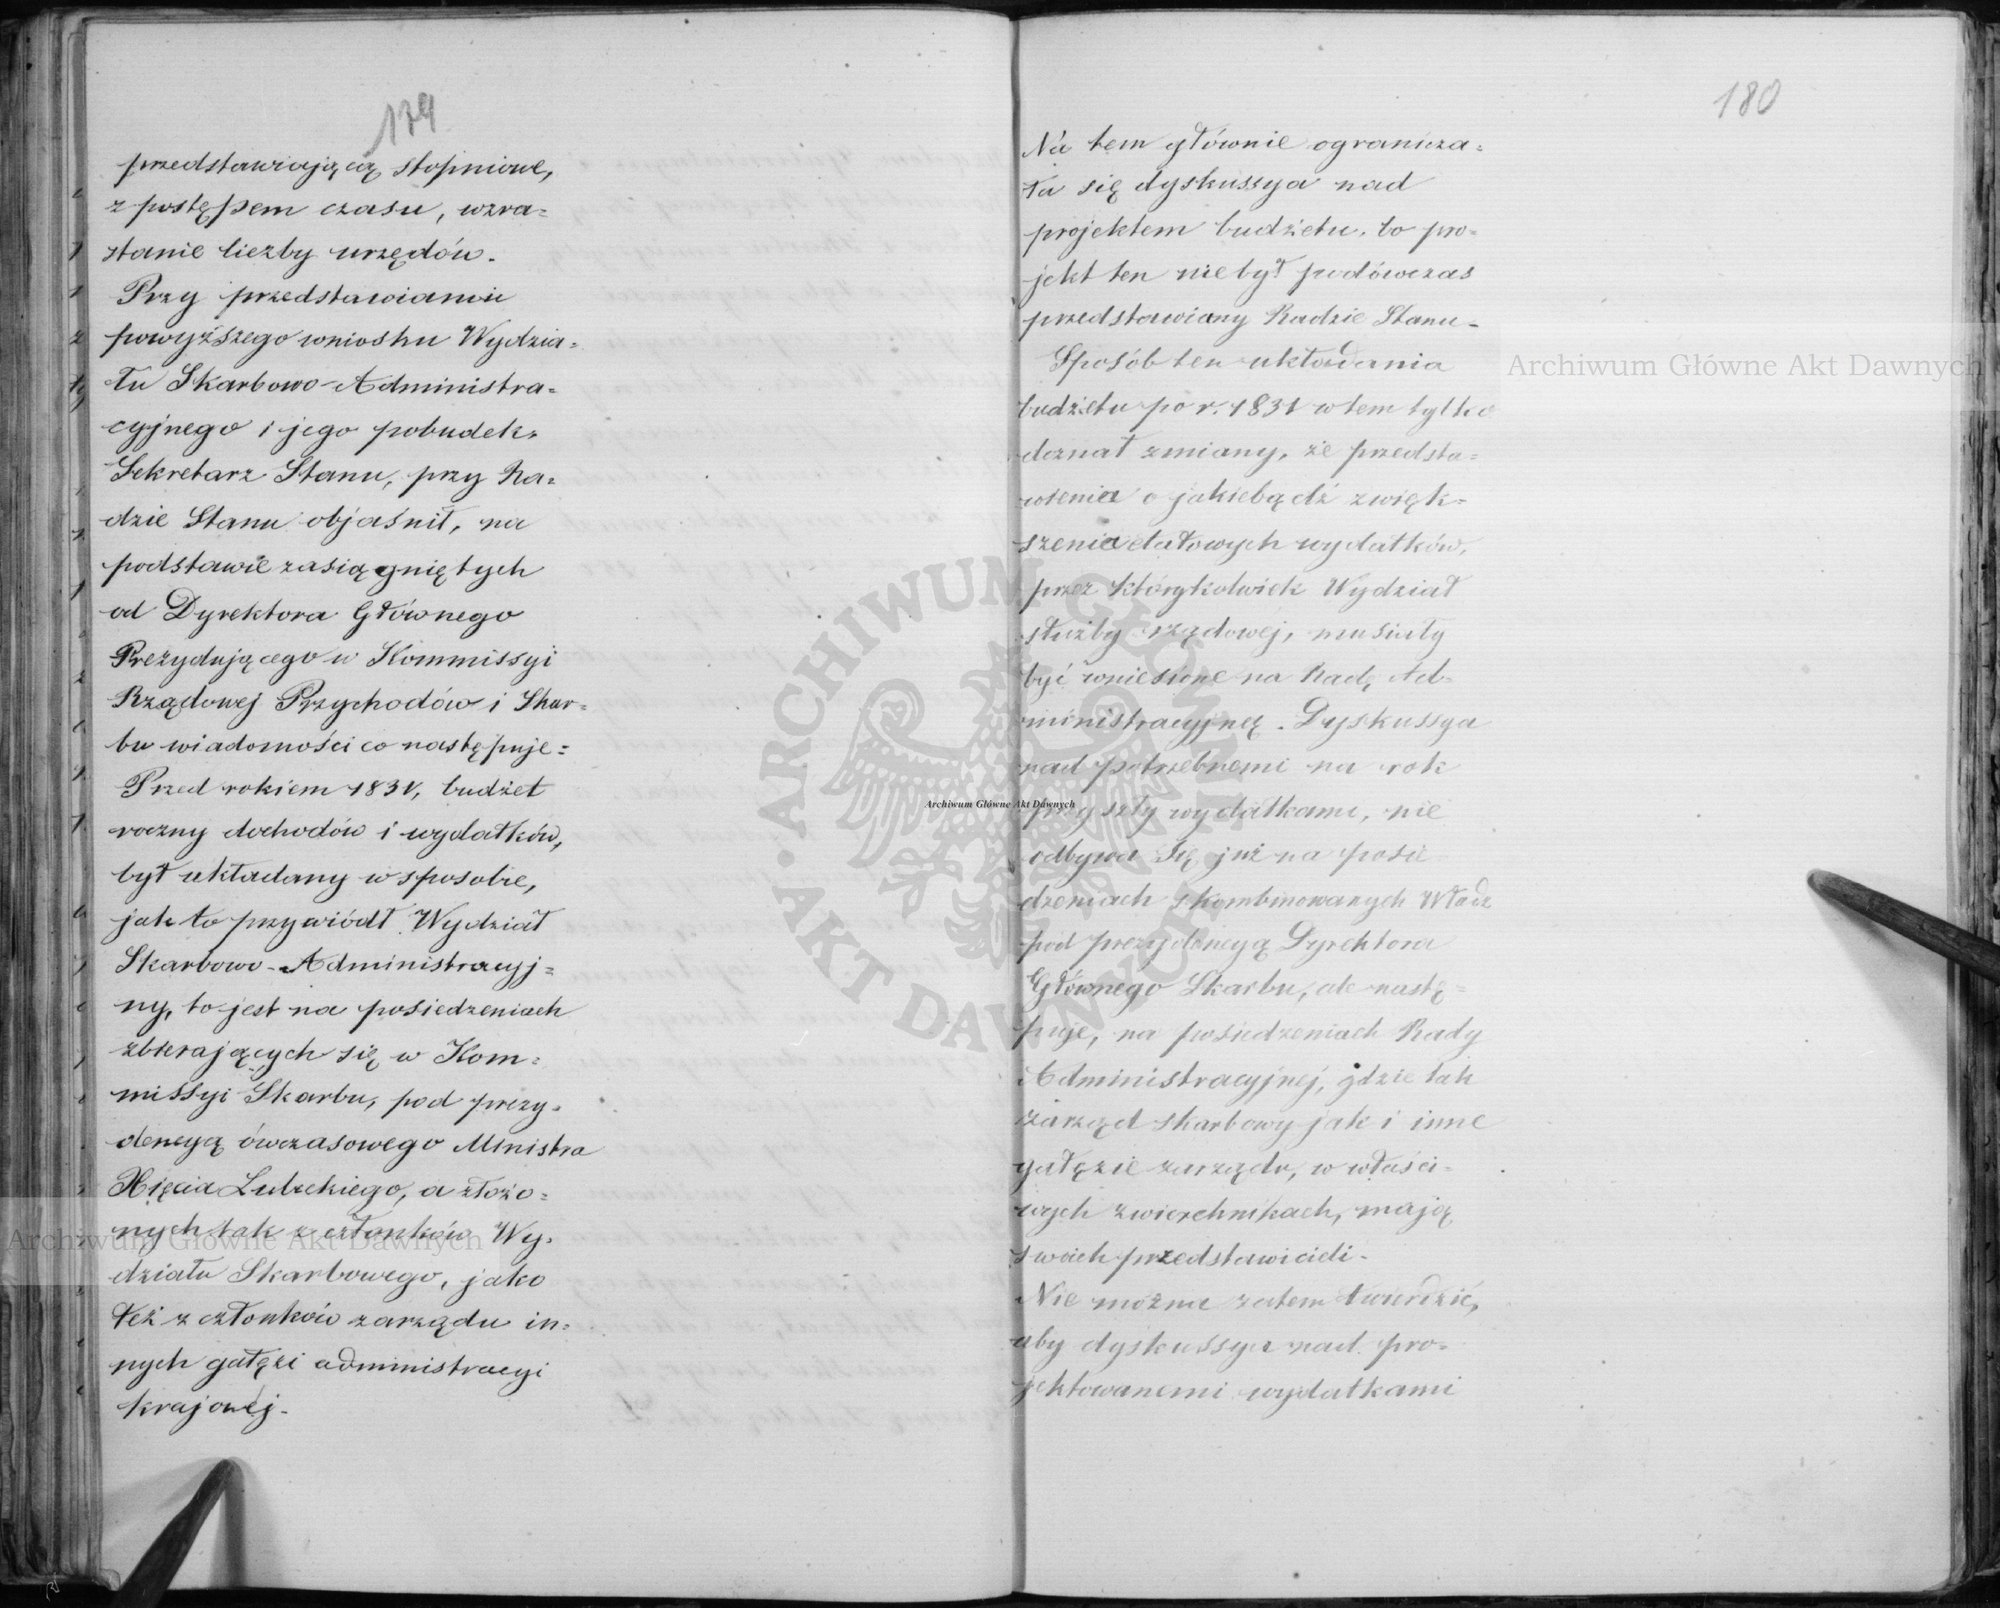 179
przedstawiającą stopniowe,
z postępem czasu, wzra=
stanie liczby urzędów.
Przy przedstawianiu
powyższego wniosku Wydzia=
łu Skarbowo-Administra=
cyjnego i jego pobudek,
Sekretarz Stanu, przy Ra=
dzie Stanu objaśnił, na
podstawie zasiągniętych
od Dyrektora Głównego
Prezydującego w Kommissyi
Rządowej Przychodów i Skar=
bu wiadomości co następuje=
Przed rokiem 1831, budżet
roczny dochodów i wydatków,
był układany w sposobie,
jak to przywiódł Wydział
Skarbowo-Administracyj=
ny, to jest na posiedzeniach
zbierających się w Kom=
missyi Skarbu, pod prezy=
dencyą ówczasowego Ministra
Xięcia Lubeckiego, a złożo=
nych tak z członków Wy=
działu Skarbowego, jako
też z członków zarządu in=
nych gałęzi administracyi
krajowej.
180
Na tem głównie ogranicza=
ła się dyskussya nad
projektem budżetu, bo pro=
jekt ten nie był podówczas
przedstawiany Radzie Stanu.
Sposób ten układania
budżetu po r. 1831 w tem tylko
doznał zmiany, że przedsta=
wienia o jakiebądź zwięk=
szenia etatowych wydatków,
przez którykolwiek Wydział
służby rządowej, musiały
być wniesione na Radę Ad=
ministracyjną. Dyskussya
nad potrzebnemi na rok
przyszły wydatkami, nie
odbywa się już na posie=
dzeniach skombinowanych Władz
pod prezydencyą Dyrektora
Głównego Skarbu, ale nastę=
puje, na posiedzeniach Rady
Administracyjnej, gdzie tak
zarząd skarbowy jak i inne
gałęzie zarządu, w właści=
wych zwierzchnikach, mają
swoich przedstawicieli.
Nie można zatem twierdzić,
aby dyskussya nad pro=
jektowanemi wydatkami
Archiwum Główne Akt Dawnych
Archiwum Główne Akt Dawnych
Archiwum Główne Akt Dawnych
ARCHIWUM GŁÓWNE • AKT DAWNYCH